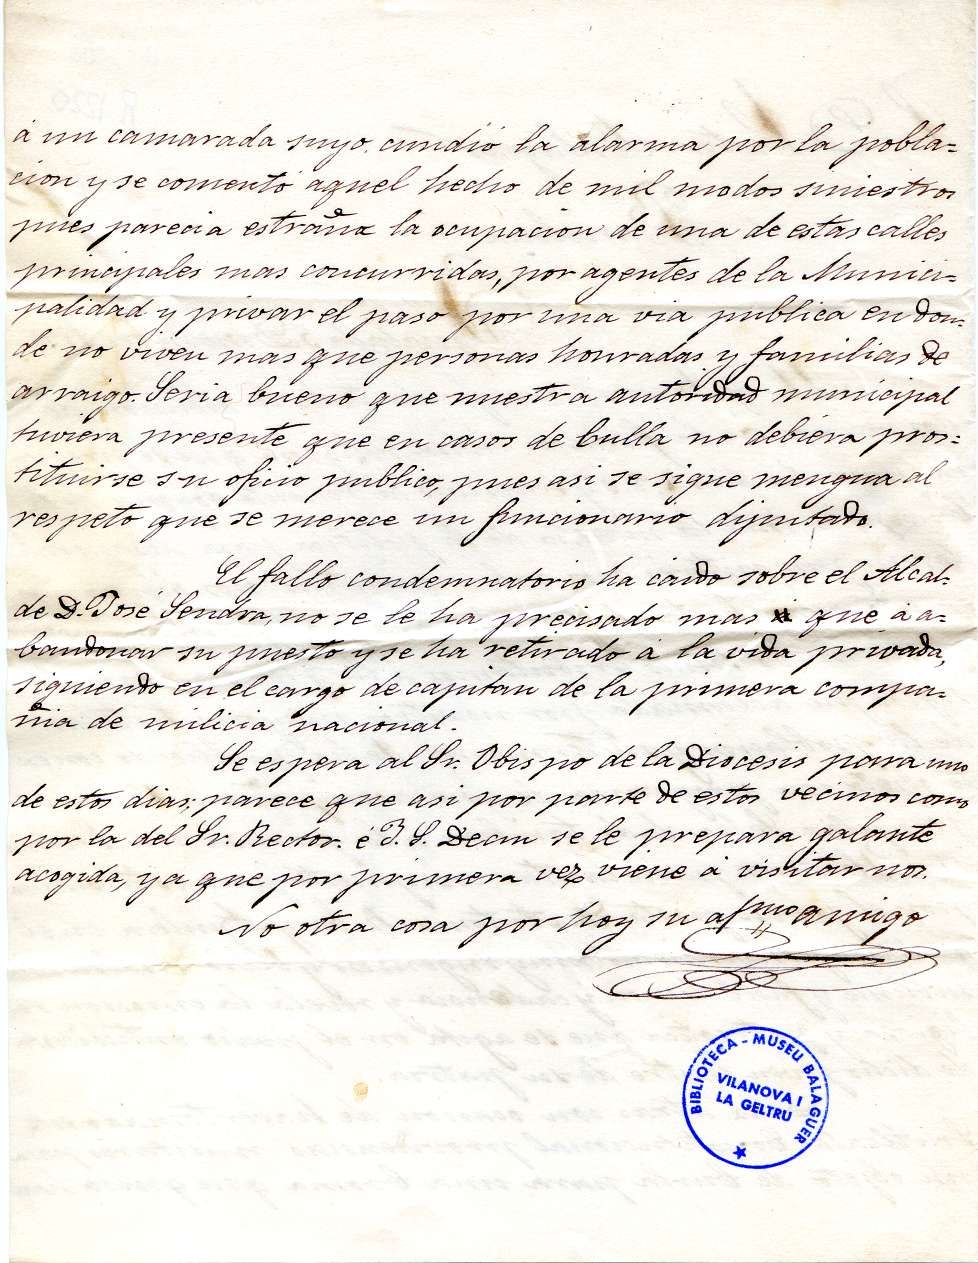 á un camarada suyo. cundió la alarma por la pobla=
cion y se comentó aquel hecho de mil modos siniestros
pues parecia estraña la ocupacion de una de estas calles
principales mas concurridas, por agentes de la Munici=
palidad y privar el paso por una via publica en don=
de no viven mas que personas honradas y familias de
arraigo. Seria bueno que nuestra autoridad municipal
tuviera presente que en casos de bulla no debiera pros=
tituirse su oficio publico, pues asi se sigue mengua al
respeto que se merece un funcionario diputado.
El fallo condemnatorio ha caido sobre el Alcal=
de D. José Sendra, no se le ha precisado mas que á a=
bandonar su puesto y se ha retirado á la vida privada,
siguiendo en el cargo de capitan de la primera compa=
ñia de milicia nacional.
Se espera al Sr. Obispo de la Diocesis para uno
de estos dias; parece que asi por parte de estos vecinos como
por la del Sr. Rector é se le prepara galante
acogida, ya que por primera vez viene á visitarnos.
No otra cosa por hoy su afmo amigo
BIBLIOTECA - MUSEU BALAGUER
VILANOVA I
LA GELTRU